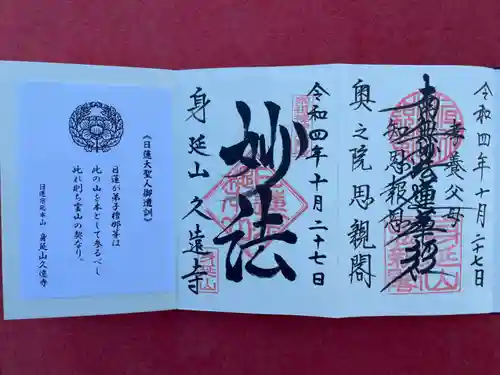 令和四年十月二十七日
孝養父母
南無妙法蓮華経
知恩報恩
奥之院思親閣
令和四年十月二十七日
妙法
身延山久遠寺
《日蓮大聖人御遺訓》
日蓮が弟子檀那等は
此の山を本として参るべし
此れ則ち霊山の契なり。
日蓮宗総本山 身延山久遠寺